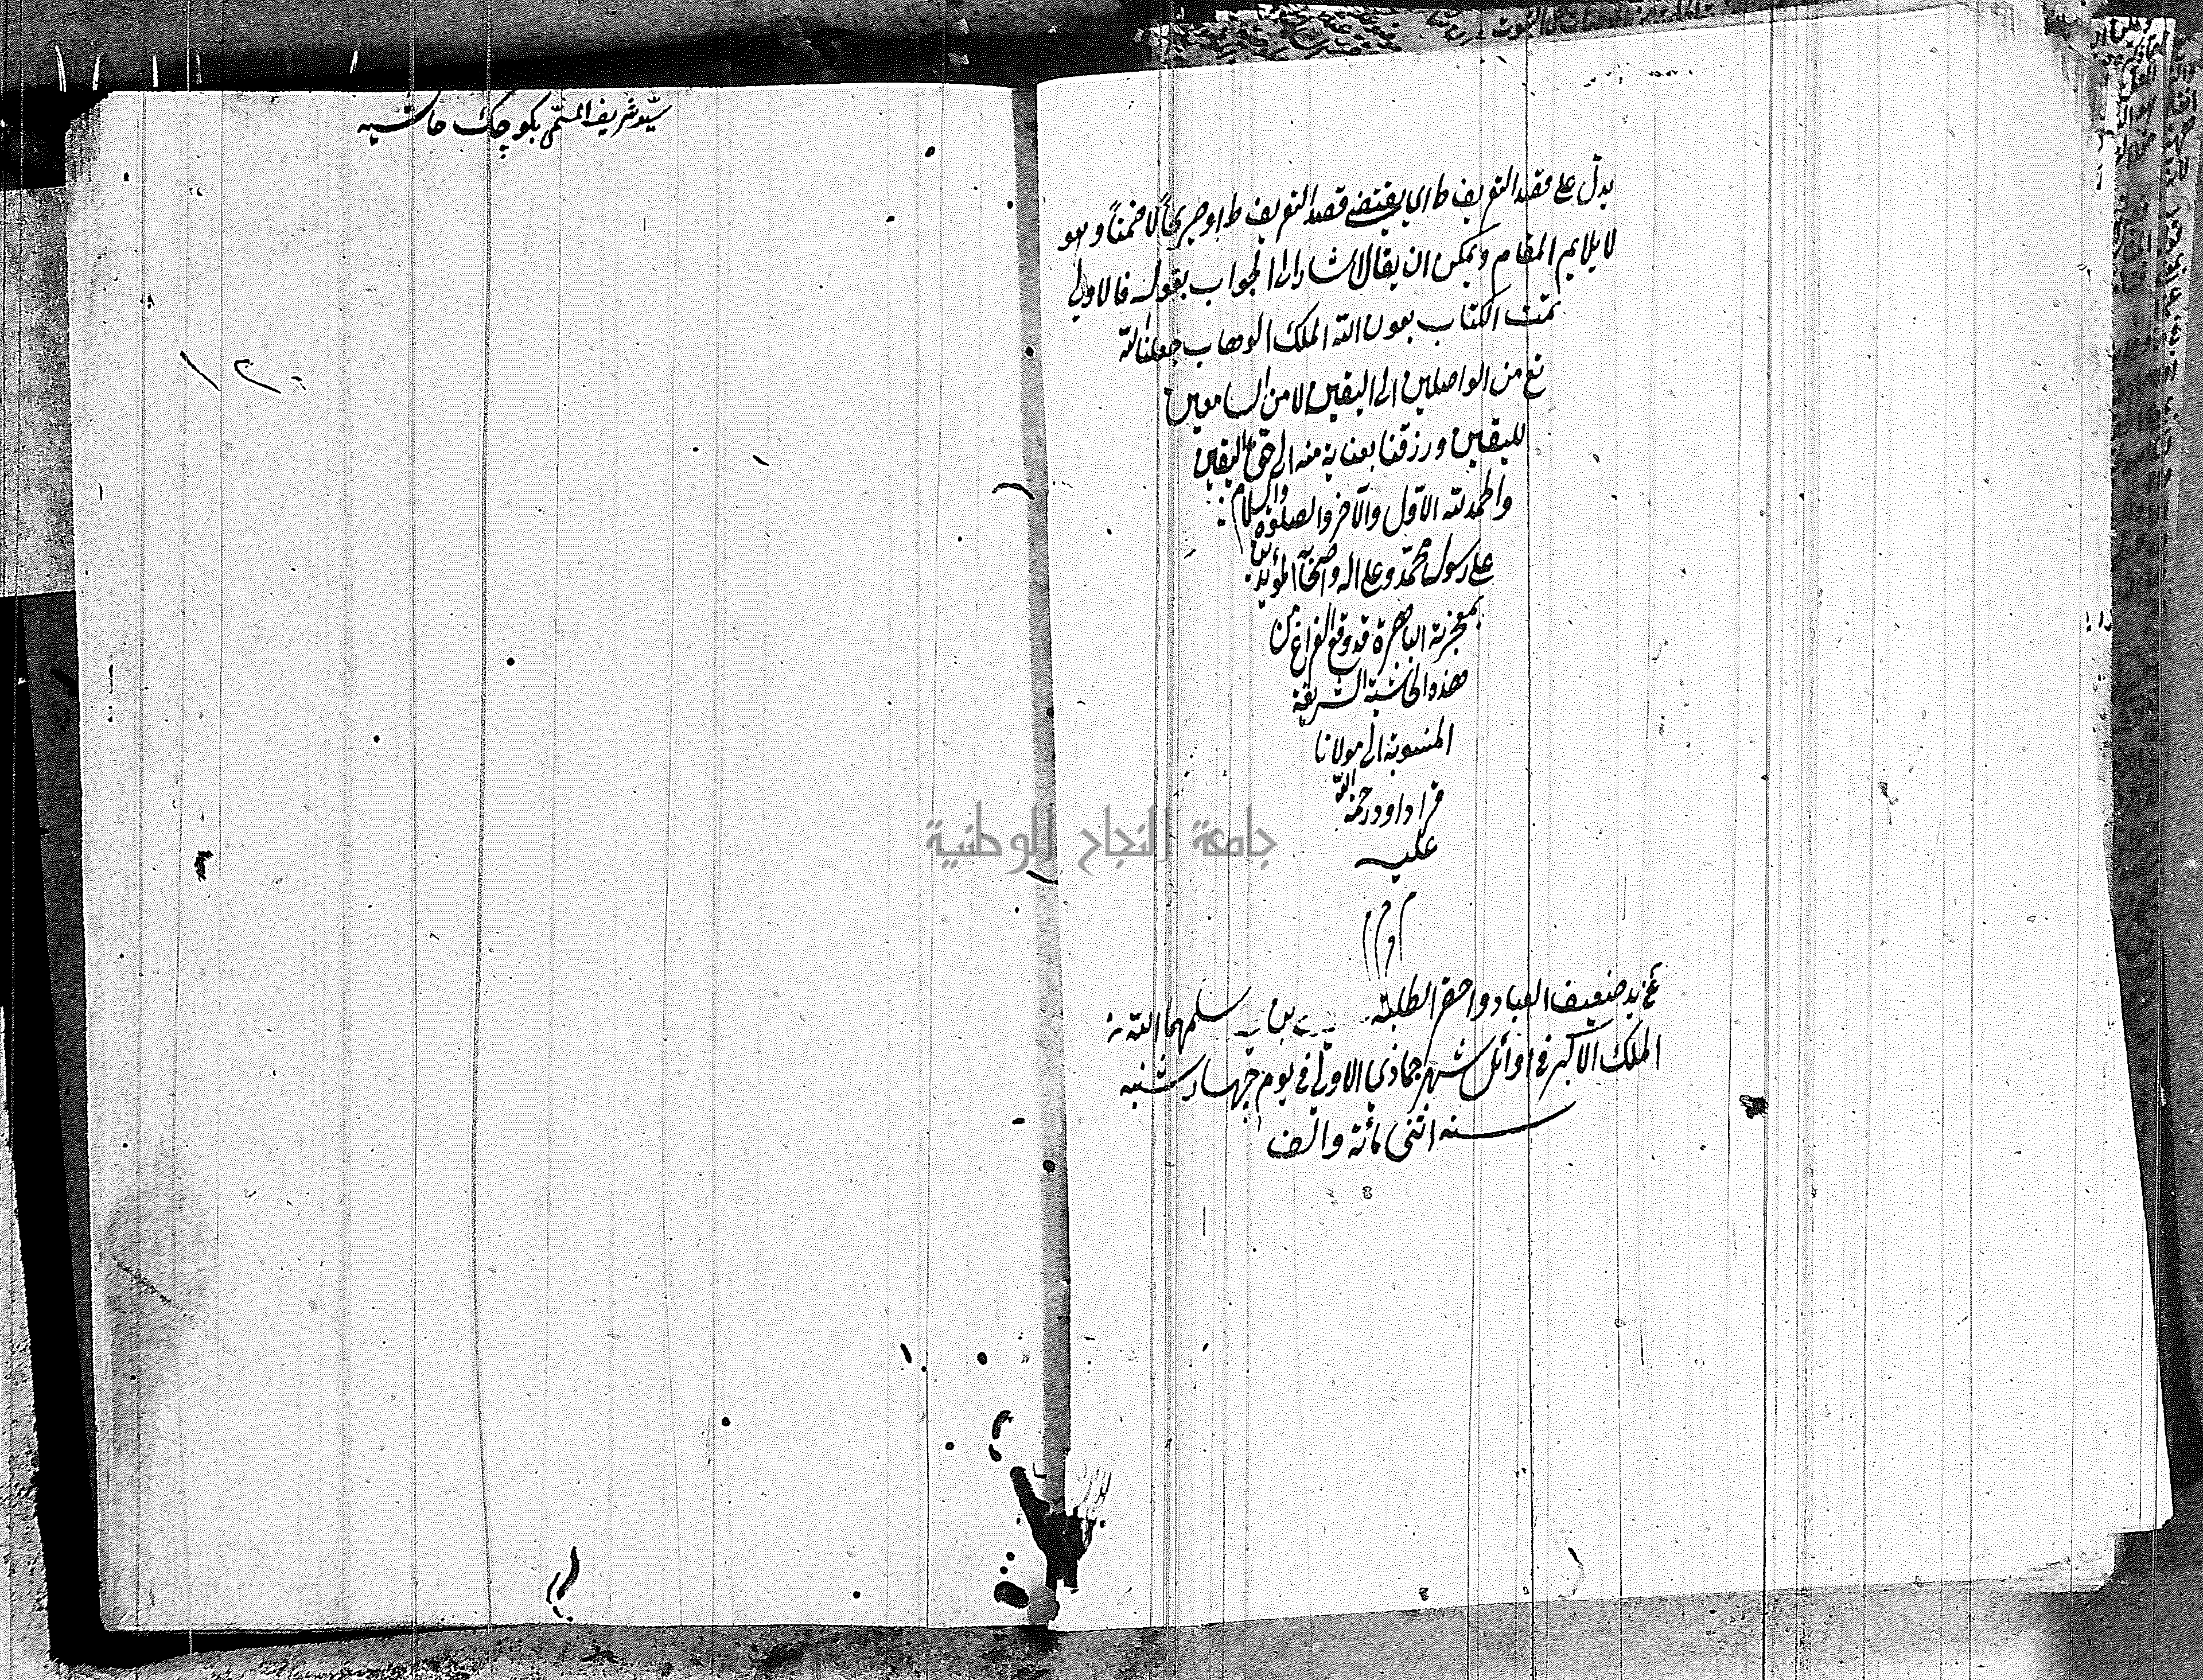 يدل على قصد التعريف ط اي يقتضي قصد التعريف ط اوجري لا ضمناً وهو
لا يلايم المقام ويمكن ان يقال اشار الى الجواب بقوله فالاولى
تمت الكتاب بعون الله الملك الوهاب جعلنا الله
تع من الواصلين الى اليقين لا من السامعين
لليقين ورزقنا بعناية منه الى حق اليقين
والحمد لله الاول والآخر والصلوة والسلام
على رسوله محمد وعلى اله واصحابه المؤيدين
بمعجزته الباهرة قد وقع الفراغ من
هذه الحاشية الشريفة
المنسوبة الى مولانا
قرا داود رحمة الله
عليه
م م م
عن يد ضعيف العباد واحقر الطلبة بن سلمهما الله
الملك الاكبر في اوائل شهر جماذي الاولى في يوم چهار شنبه
سنه اثنى مائة والف
سيد شريف المسمى بكوچك حاشيه
جامعة النجاح الوطنية